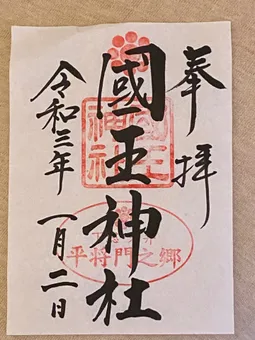 奉拝
國王神社
國王神社
平将門之郷
令和三年
一月二日